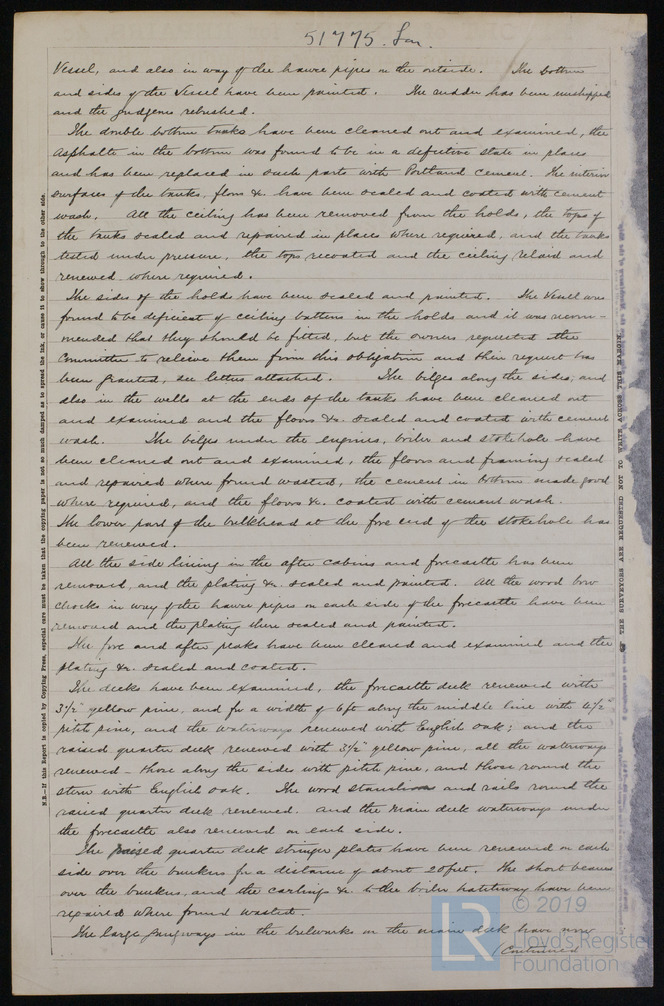 51775. Lon.
Vessel, and also in way of the hawse pipes on the outside. The bottom
and sides of the Vessel have been painted. The rudder has been unshipped
and the gudgeons rebushed.
The double bottom tanks have been cleaned out and examined, the
asphalte in the bottom was found to be in a defective state in places
and has been replaced in such parts with Portland cement. The interior
surfaces of the tanks, floors &c. have been scaled and coated with cement
wash. All the ceiling has been removed from the holds, the tops of
the tanks scaled and repaired in places where required, and the tanks
tested under pressure, the tops recoated and the ceiling relaid and
renewed where required.
The sides of the holds have been scaled and painted. The Vessel was
found to be deficient of ceiling battens in the holds and it was recom-
mended that they should be fitted, but the owners requested the
Committee to relieve them from this obligation and their request has
been granted, see letter attached. The bilges along the sides, and
also in the wells at the ends of the tanks have been cleaned out
and examined and the floors &c. scaled and coated with cement
wash. The bilges under the engines, boiler and stokehole have
been cleaned out and examined, the floors and framing scaled
and repaired where found wasted, the cement in bottom made good
where required, and the floors &c. coated with cement wash.
The lower part of the bulkhead at the fore end of the stokehole has
been renewed.
All the side lining in the after cabins and forecastle has been
removed, and the plating &c. scaled and painted. All the wood bow
chocks in way of the hawse pipes on each side of the forecastle have been
removed and the plating there scaled and painted.
The fore and after peaks have been cleared and examined and the
plating &c. scaled and coated.
The decks have been examined, the forecastle deck renewed with
3½" yellow pine, and for a width of 6ft along the middle line with 4½"
pitch pine, and the waterways renewed with English oak; and the
raised quarter deck renewed with 3½" yellow pine, all the waterways
renewed - those along the sides with pitch pine, and those round the
stern with English oak. The wood stanchions and rails round the
raised quarter deck renewed. And the main deck waterways under
the forecastle also renewed on each side.
The raised quarter deck stringer plates have been renewed on each
side over the bunkers for a distance of about 20 feet. The short beams
over the bunkers, and the carlings &c. to the boiler hatchway have been
repaired where found wasted.
The large gangways in the bulwarks on the main deck have now
(Continued
N.B.—If this Report is copied by Copying Press, especial care must be taken that the copying paper is not so much damped as to spread the ink, or cause it to show through to the other side.
THE SURVEYORS ARE REQUESTED NOT TO WRITE ACROSS THIS MARGIN.
LR
© 2019
Lloyd's Register
Foundation